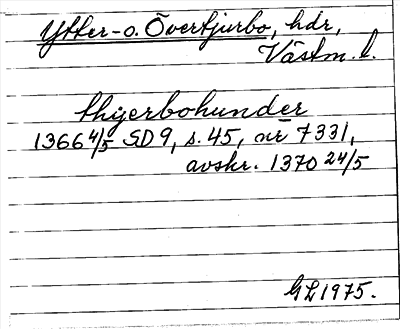 Ytter- o. Övertjurbo, hdr,
Västm. l.
thyerbohundēr
1366 4/5 SD 9, s. 45, nr 7331,
avskr. 1370 24/5
GL 1975.